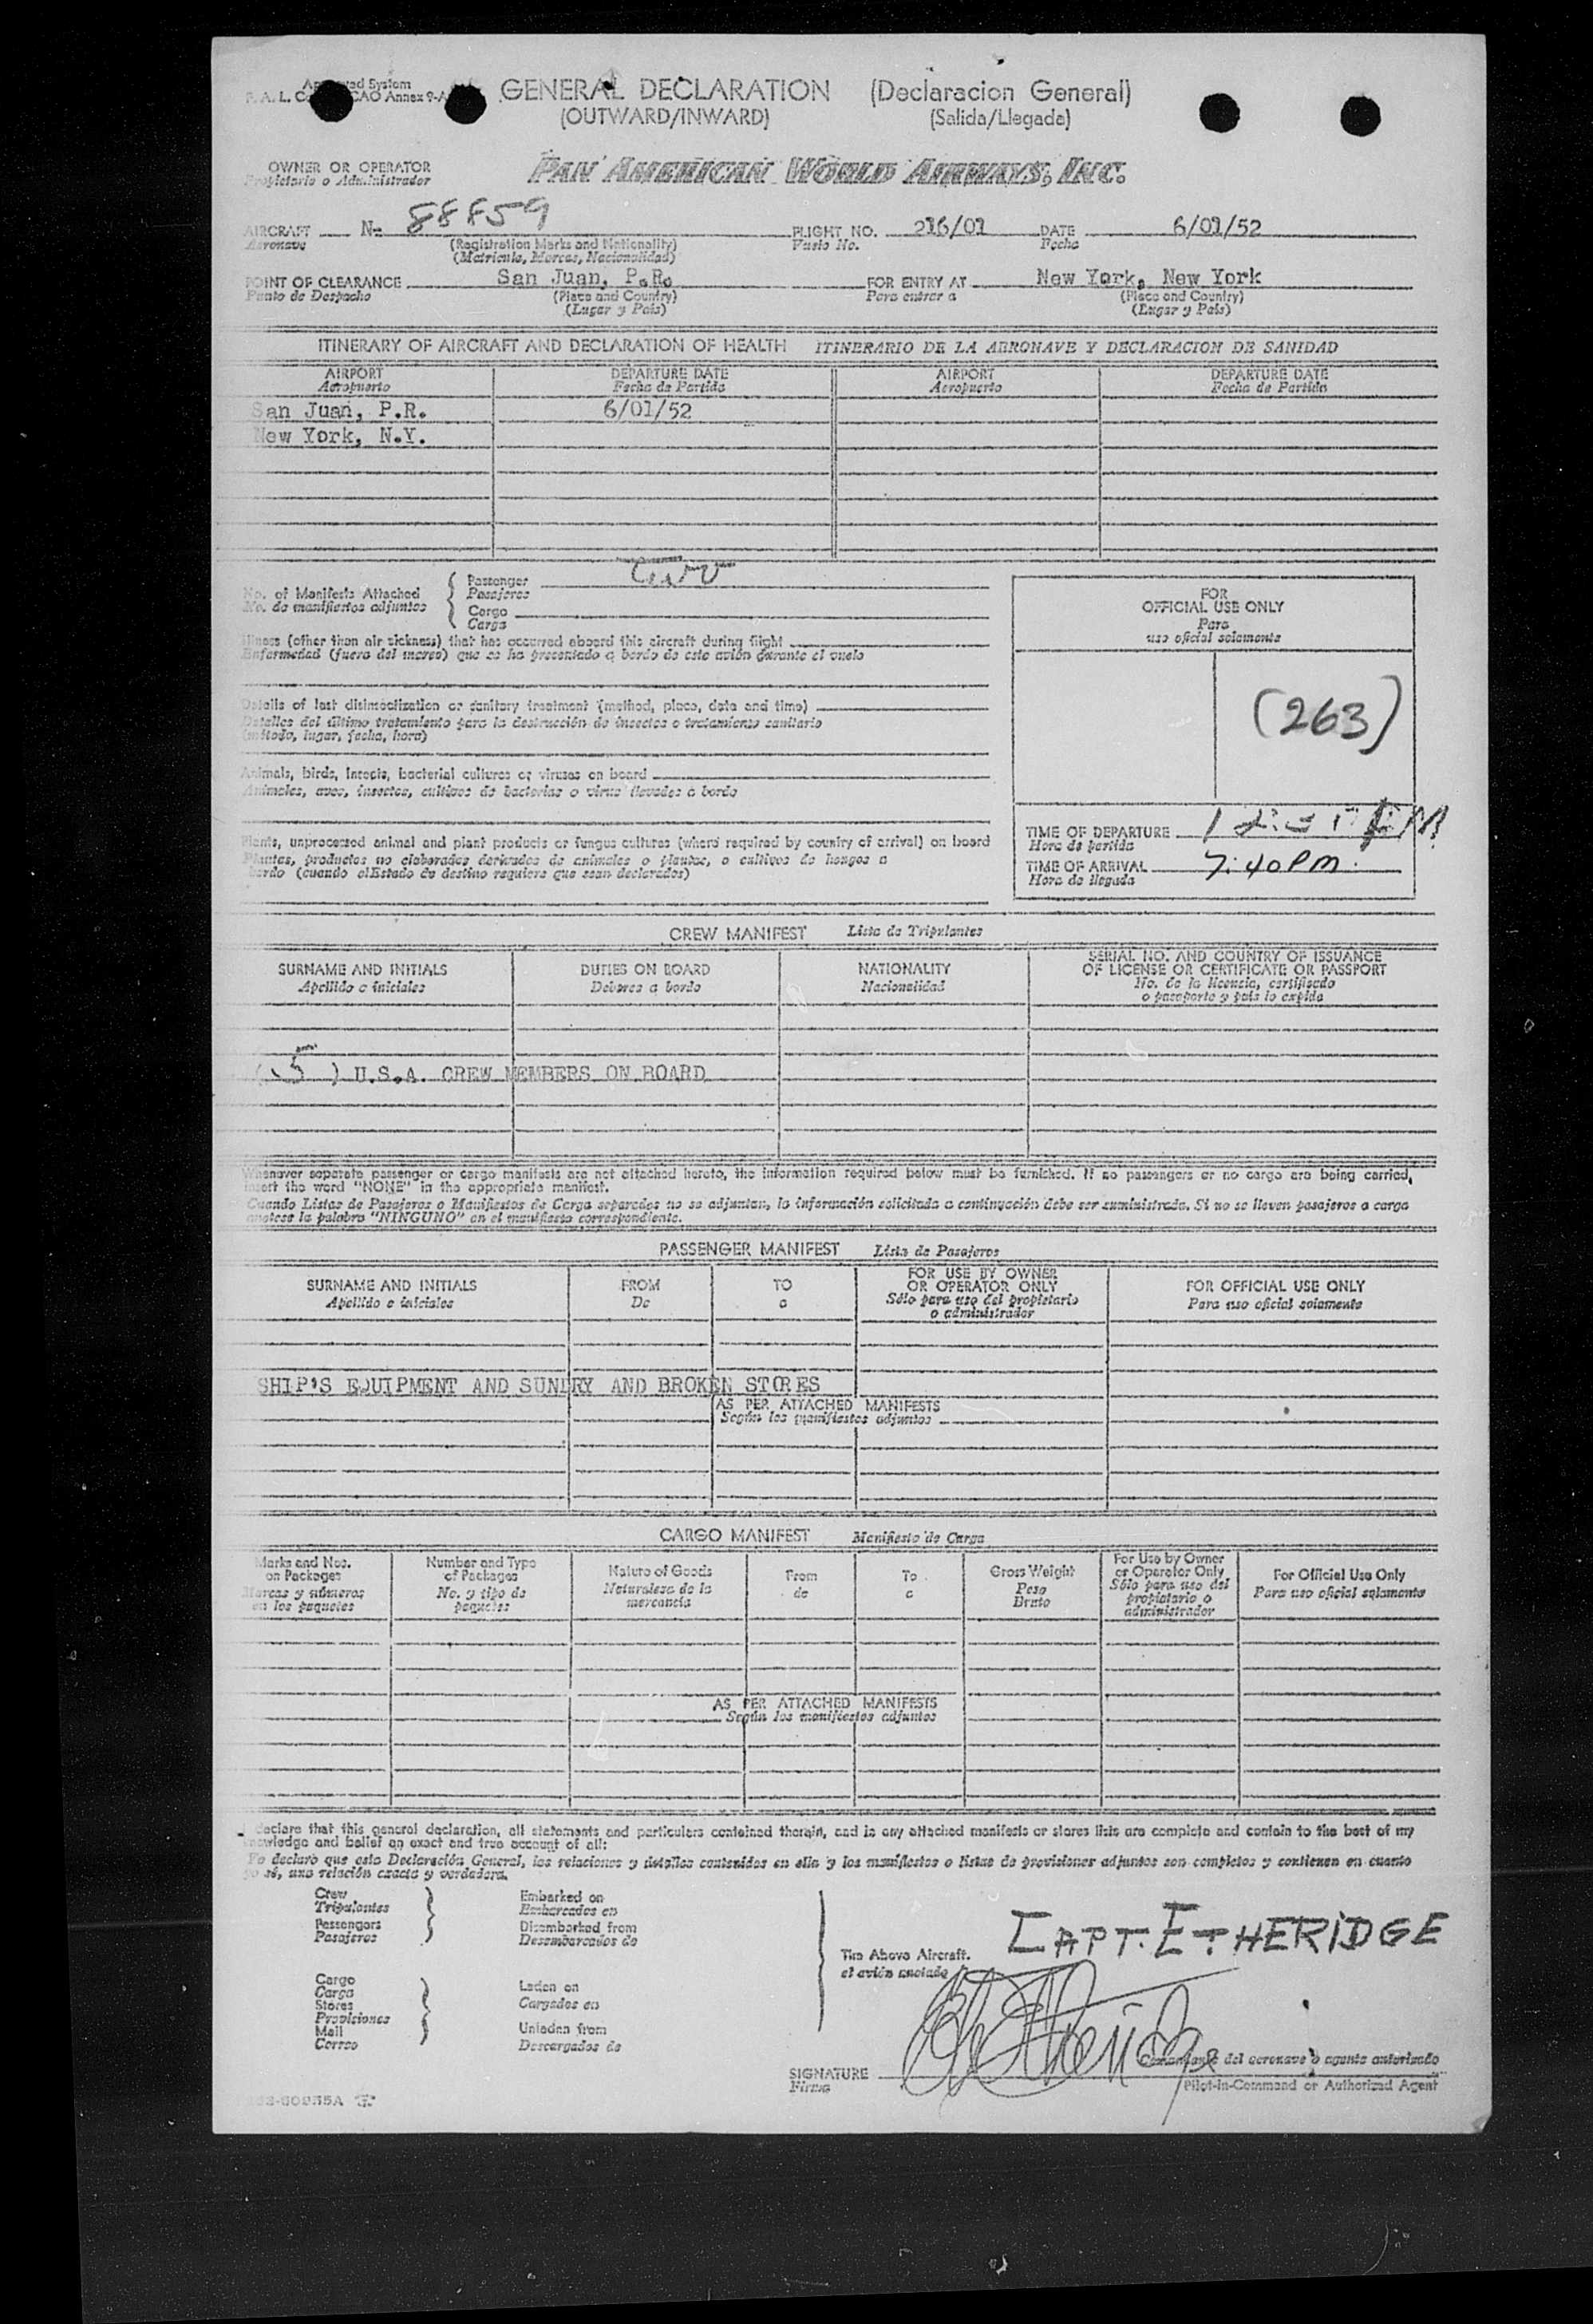 GENERAL DECLARATION (Declaracion General)
(OUTWARD/INWARD) (Salida/Llegada)
OWNER OR OPERATOR PAN AMERICAN WORLD AIRWAYS, INC.
Propietario o Administrador
AIRCRAFT N- 88859 FLIGHT NO. 216/01 DATE 6/01/52
Aeronave (Registration Marks and Nationality) Vuelo No. Fecha
(Matricula, Marcas, Nacionalidad)
POINT OF CLEARANCE San Juan, P.R. FOR ENTRY AT New York, New York
Punto de Despacho (Place and Country) Para entrar a (Place and Country)
(Lugar y País) (Lugar y País)
ITINERARY OF AIRCRAFT AND DECLARATION OF HEALTH ITINERARIO DE LA AERONAVE Y DECLARACION DE SANIDAD
AIRPORT DEPARTURE DATE AIRPORT DEPARTURE DATE
Aeropuerto Fecha de Partida Aeropuerto Fecha de Partida
San Juan, P.R. 6/01/52
New York, N.Y.
No. of Manifests Attached Passenger
No. de manifiestos adjuntos Pasajeros
Cargo
Carga
Illness (other than air sickness) that has occurred aboard this aircraft during flight
Enfermedad (fuera del mareo) que se ha presentado a bordo de este avión durante el vuelo
Details of last disinsectization or sanitary treatment (method, place, date and time)
Detalles del último tratamiento para la destrucción de insectos o tratamiento sanitario
(método, lugar, fecha, hora)
Animals, birds, insects, bacterial cultures or viruses on board
Animales, aves, insectos, cultivos de bacterias o virus llevados a bordo
Plants, unprocessed animal and plant products or fungus cultures (where required by country of arrival) on board
Plantas, productos no elaborados derivados de animales o plantas, o cultivos de hongos a
bordo (cuando el Estado de destino requiere que sean declarados)
FOR
OFFICIAL USE ONLY
Para
uso oficial solamente
(263)
TIME OF DEPARTURE
Hora de partida
TIME OF ARRIVAL 7:40 PM.
Hora de llegada
CREW MANIFEST Lista de Tripulantes
SURNAME AND INITIALS DUTIES ON BOARD NATIONALITY SERIAL NO. AND COUNTRY OF ISSUANCE
OF LICENSE OR CERTIFICATE OR PASSPORT
Apellido e iniciales Deberes a bordo Nacionalidad No. de la licencia, certificado
o pasaporte y país lo expide
(5) U.S.A. CREW MEMBERS ON BOARD
Whenever separate passenger or cargo manifests are not attached hereto, the information required below must be furnished. If no passengers or no cargo are being carried,
insert the word "NONE" in the appropriate manifest.
Cuando Listas de Pasajeros o Manifiestos de Carga separados no se adjuntan, la información solicitada a continuación debe ser suministrada. Si no se llevan pasajeros o carga
anótese la palabra "NINGUNO" en el manifiesto correspondiente.
PASSENGER MANIFEST Lista de Pasajeros
SURNAME AND INITIALS FROM TO FOR USE BY OWNER
OR OPERATOR ONLY FOR OFFICIAL USE ONLY
Apellido e iniciales De a Sólo para uso del propietario
o administrador Para uso oficial solamente
SHIP'S EQUIPMENT AND SUNDRY AND BROKEN STORES
AS PER ATTACHED MANIFESTS
Según los manifiestos adjuntos
CARGO MANIFEST Manifiesto de Carga
Marks and Nos.
on Packages
Marcas y números
en los paquetes
Number and Type
of Packages
No. y tipo de
paquetes
Nature of Goods
Naturaleza de la
mercancía
From
de
To
a
Gross Weight
Peso
Bruto
For Use by Owner
or Operator Only
Sólo para uso del
propietario o
administrador
For Official Use Only
Para uso oficial solamente
AS PER ATTACHED MANIFESTS
Según los manifiestos adjuntos
I declare that this general declaration, all statements and particulars contained therein, and in any attached manifests or stores lists are complete and contain to the best of my
knowledge and belief an exact and true account of all:
Yo declaro que esta Declaración General, las relaciones y detalles contenidos en ella y los manifiestos o listas de provisiones adjuntos son completos y contienen en cuanto
yo sé, una relación exacta y verdadera.
Crew Embarked on
Tripulantes Embarcados en
Passengers Disembarked from
Pasajeros Desembarcados de
Cargo
Carga Laden on
Stores Cargados en
Provisiones
Mail Unladen from
Correo Descargados de
The Above Aircraft.
el avión anotado
CAPT. ETHERIDGE
Comandante del aeronave o agente autorizado
SIGNATURE
Firma Pilot-in-Command or Authorized Agent